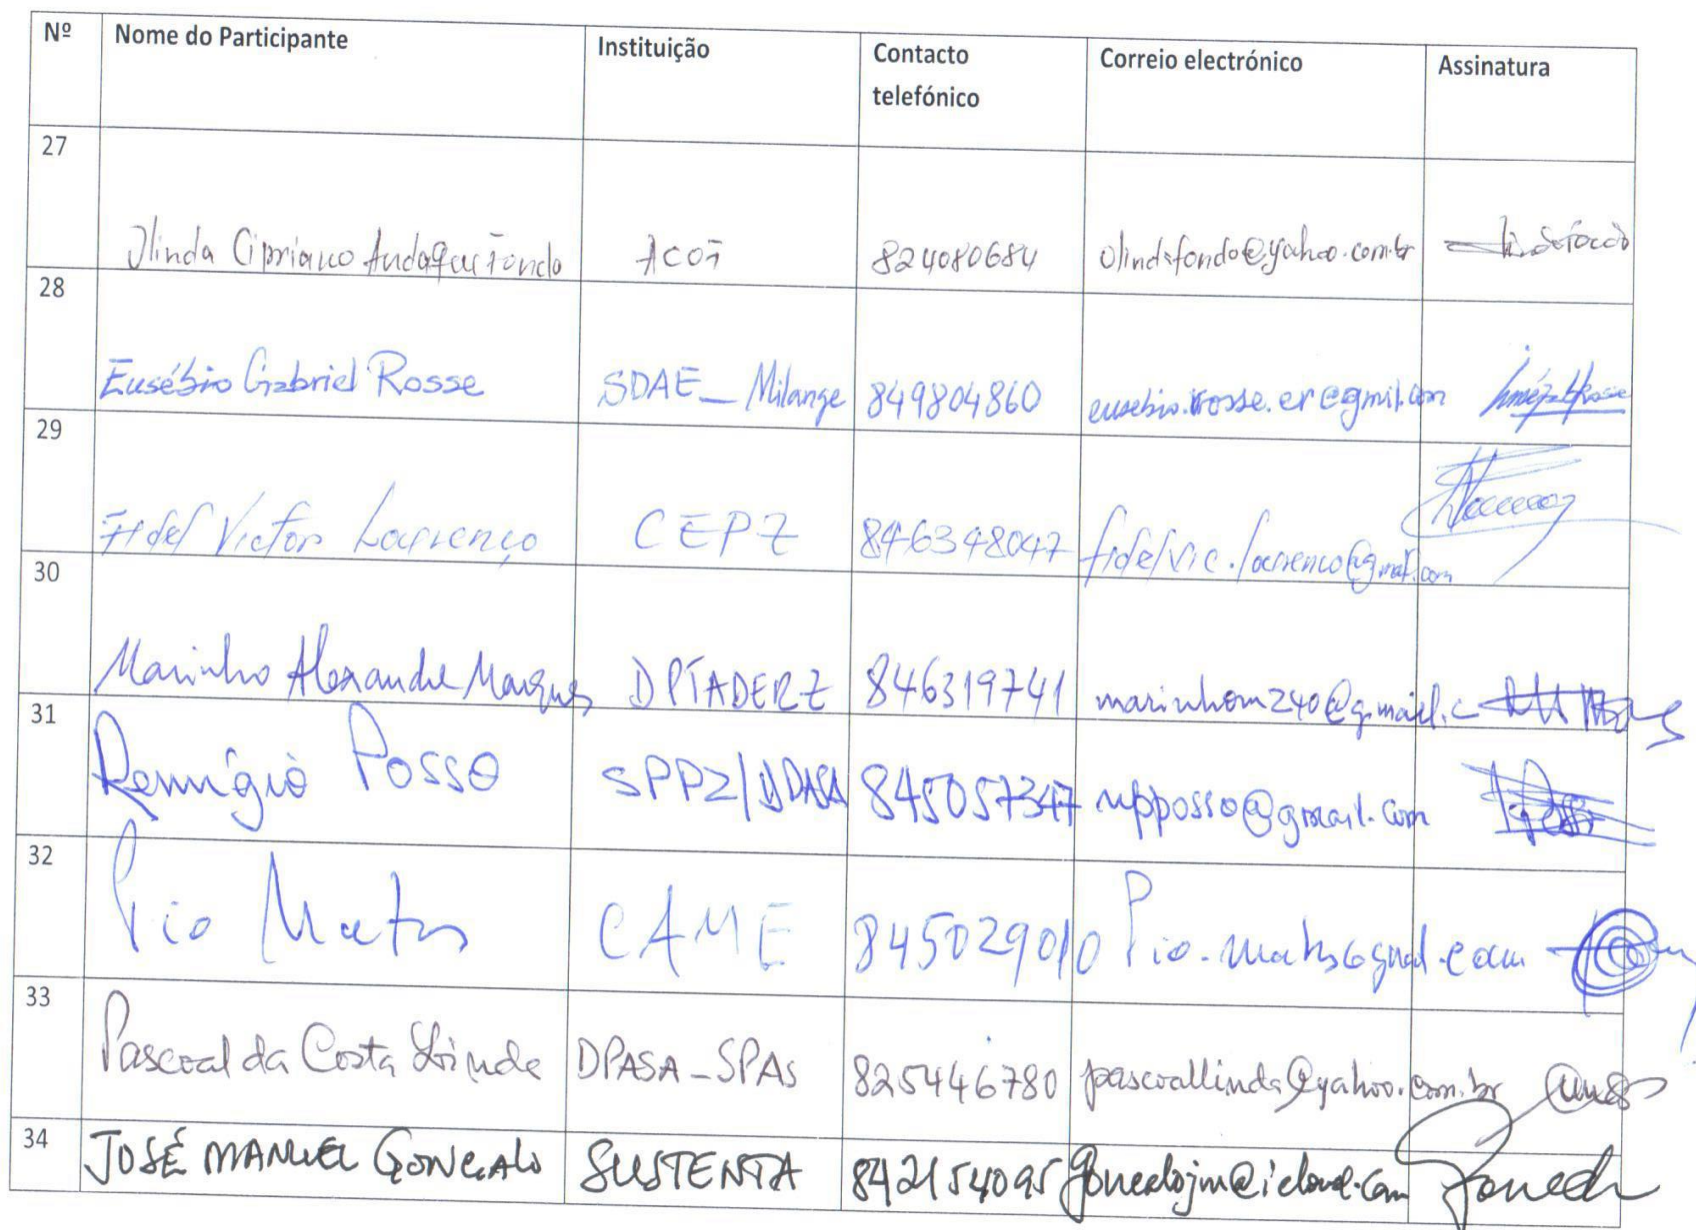 Nº Nome do Participante Instituição Contacto telefónico Correio electrónico Assinatura
27
Olinda Cipriano Fondo 824080684 olindafondo@yahoo.com.br
28
Eusébio Gabriel Rosse SDAE_Milange 849804860 eusebio.rosse.er@gmil.com
29
Fidel Victor Lourenço CEPZ 846348047 fidelvic.lourenco@gmail.com
30
Marinho Alexandre Marques DPTADERZ 846319741 marinhom240@gmail.c
31
Remígio Posso SPPZ/DPASA 845057347 rpposso@gmail.com
32
Pio Matos CAME 845029010
33
Pascoal da Costa Linde DPASA_SPAs 825446780 pascoallinda@yahoo.com.br
34
JOSÉ MANUEL GONCALO SUSTENTA 842154095 goncalojm@icloud.com